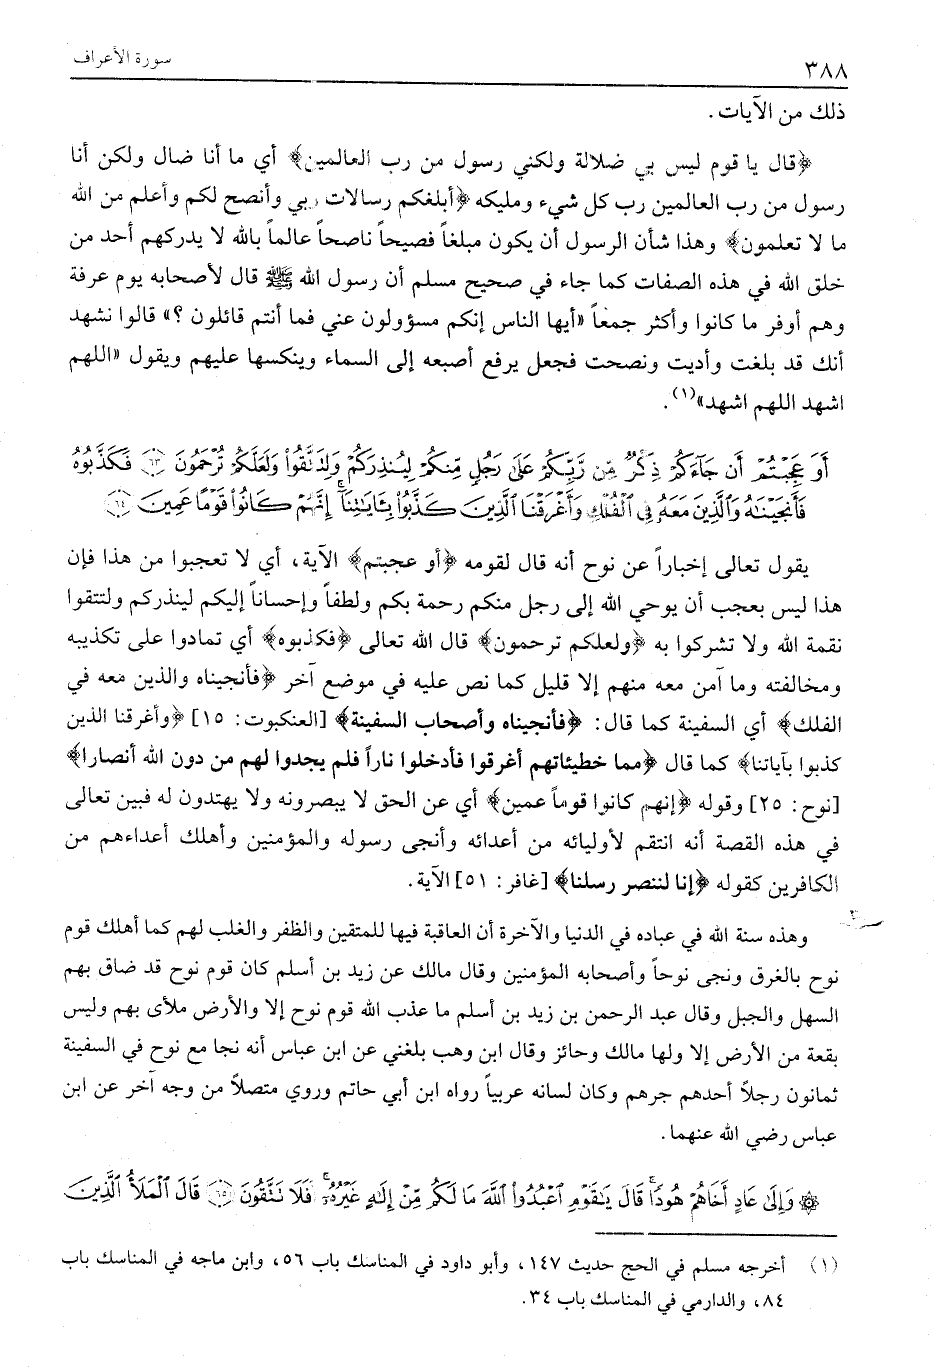 ٣٨٨ سورة الأعراف
ذلك من الآيات .
﴿قال يا قوم ليس بي ضلالة ولكني رسول من رب العالمين﴾ أي ما أنا ضال ولكن أنا
رسول من رب العالمين رب كل شيء ومليكه ﴿أبلغكم رسالات ربي وأنصح لكم وأعلم من الله
ما لا تعلمون﴾ وهذا شأن الرسول أن يكون مبلغاً فصيحاً ناصحاً عالماً بالله لا يدركهم أحد من
خلق الله في هذه الصفات كما جاء في صحيح مسلم أن رسول الله ﷺ قال لأصحابه يوم عرفة
وهم أوفر ما كانوا وأكثر جمعاً «أيها الناس إنكم مسؤولون عني فما أنتم قائلون ؟» قالوا نشهد
أنك قد بلغت وأديت ونصحت فجعل يرفع أصبعه إلى السماء وينكسها عليهم ويقول «اللهم
اشهد اللهم اشهد»(١).
أَوَ عَجِبْتُمْ أَن جَآءَكُمْ ذِكْرٌ مِّن رَّبِّكُمْ عَلَىٰ رَجُلٍ مِّنكُمْ لِيُنذِرَكُمْ وَلِتَتَّقُوا۟ وَلَعَلَّكُمْ تُرْحَمُونَ ٦٣ فَكَذَّبُوهُ
فَأَنجَيْنَٰهُ وَٱلَّذِينَ مَعَهُۥ فِى ٱلْفُلْكِ وَأَغْرَقْنَا ٱلَّذِينَ كَذَّبُوا۟ بِـَٔايَٰتِنَآ إِنَّهُمْ كَانُوا۟ قَوْمًا عَمِينَ ٦٤
يقول تعالى إخباراً عن نوح أنه قال لقومه ﴿أو عجبتم﴾ الآية، أي لا تعجبوا من هذا فإن
هذا ليس بعجب أن يوحي الله إلى رجل منكم رحمة بكم ولطفاً وإحساناً إليكم لينذركم ولتتقوا
نقمة الله ولا تشركوا به ﴿ولعلكم ترحمون﴾ قال الله تعالى ﴿فكذبوه﴾ أي تمادوا على تكذيبه
ومخالفته وما آمن معه منهم إلا قليل كما نص عليه في موضع آخر ﴿فأنجيناه والذين معه في
الفلك﴾ أي السفينة كما قال: ﴿فأنجيناه وأصحاب السفينة﴾ [العنكبوت: ١٥] ﴿وأغرقنا الذين
كذبوا بآياتنا﴾ كما قال ﴿مما خطيئاتهم أغرقوا فأدخلوا ناراً فلم يجدوا لهم من دون الله أنصارا﴾
[نوح: ٢٥] وقوله ﴿إنهم كانوا قوماً عمين﴾ أي عن الحق لا يبصرونه ولا يهتدون له فبين تعالى
في هذه القصة أنه انتقم لأوليائه من أعدائه وأنجى رسوله والمؤمنين وأهلك أعداءهم من
الكافرين كقوله ﴿إنا لننصر رسلنا﴾ [غافر: ٥١] الآية.
وهذه سنة الله في عباده في الدنيا والآخرة أن العاقبة فيها للمتقين والظفر والغلب لهم كما أهلك قوم
نوح بالغرق ونجى نوحاً وأصحابه المؤمنين وقال مالك عن زيد بن أسلم كان قوم نوح قد ضاق بهم
السهل والجبل وقال عبد الرحمن بن زيد بن أسلم ما عذب الله قوم نوح إلا والأرض ملأى بهم وليس
بقعة من الأرض إلا ولها مالك وحائز وقال ابن وهب بلغني عن ابن عباس أنه نجا مع نوح في السفينة
ثمانون رجلاً أحدهم جرهم وكان لسانه عربياً رواه ابن أبي حاتم وروي متصلاً من وجه آخر عن ابن
عباس رضي الله عنهما.
۞ وَإِلَىٰ عَادٍ أَخَاهُمْ هُودًا قَالَ يَٰقَوْمِ ٱعْبُدُوا۟ ٱللَّهَ مَا لَكُم مِّنْ إِلَٰهٍ غَيْرُهُۥٓ أَفَلَا تَتَّقُونَ ٦٥ قَالَ ٱلْمَلَأُ ٱلَّذِينَ
(١) أخرجه مسلم في الحج حديث ١٤٧، وأبو داود في المناسك باب ٥٦، وابن ماجه في المناسك باب
٨٤، والدارمي في المناسك باب ٣٤.